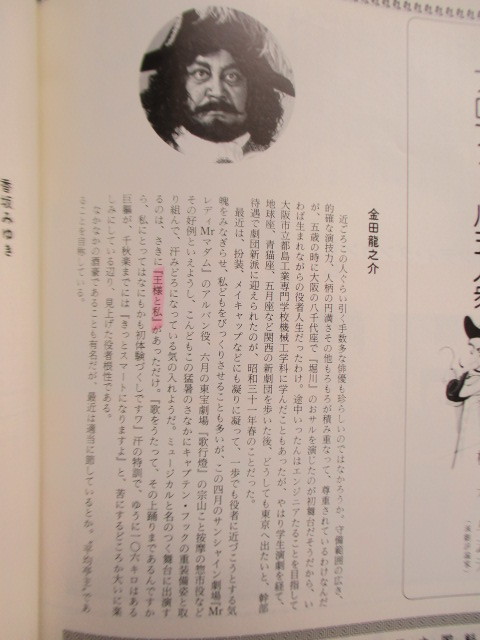 金田龍之介
近ごろこの人ぐらい引く手数多な俳優も珍らしいのではなかろうか。守備範囲の広さ、
的確な演技力、人柄の円満さその他もろもろが積み重なって、尊重されているわけなんだ
が、五歳の時に大阪の八千代座で『堀川』のおサルを演じたのが初舞台だそうだから、い
わば生まれながらの役者人生だったわけ。途中いったんはエンジニアたることを目指して
大阪市立都島工業専門学校機械工学科に学んだこともあったが、やはり学生演劇を経て、
地球座、青猫座、五月座など関西の新劇団を歩いた後、どうしても東京へ出たいと、幹部
待遇で劇団新派に迎えられたのが、昭和三十一年春のことだった。
最近は、扮装、メイキャップなどにも凝りに凝って、一歩でも役者に近づこうとする気
魄をみなぎらせ、私どもをびっくりさせることも多いが、この四月のサンシャイン劇場『Mr
レディMrマダム』のアルバン役、六月の東宝劇場『歌行燈』の宗山こと按摩の惣市役など
その好例といえようし、こんどもこの猛暑のさなかにキャプテン・フックの重装備姿と取
り組んで、汗みどろになっている気の入れようだ。ミュージカルと名のつく舞台に出演す
るのは、さきに『王様と私』があっただけ。『歌をうたって、その上踊りまであるんですか
ら、私にとってはなにもかも初体験づくしですワ』汗の特訓で、ゆうに一〇六キロはある
巨軀が、千秋楽までには『きっとスマートになりますよ』と、苦にするどころか大いに楽
しみにしている辺り、見上げた役者根性である。
なかなかの酒豪であることも有名だが、最近は適当に節しているとか。平均寿太であ
ることを自称している。
香坂みゆき
（演劇評論家）